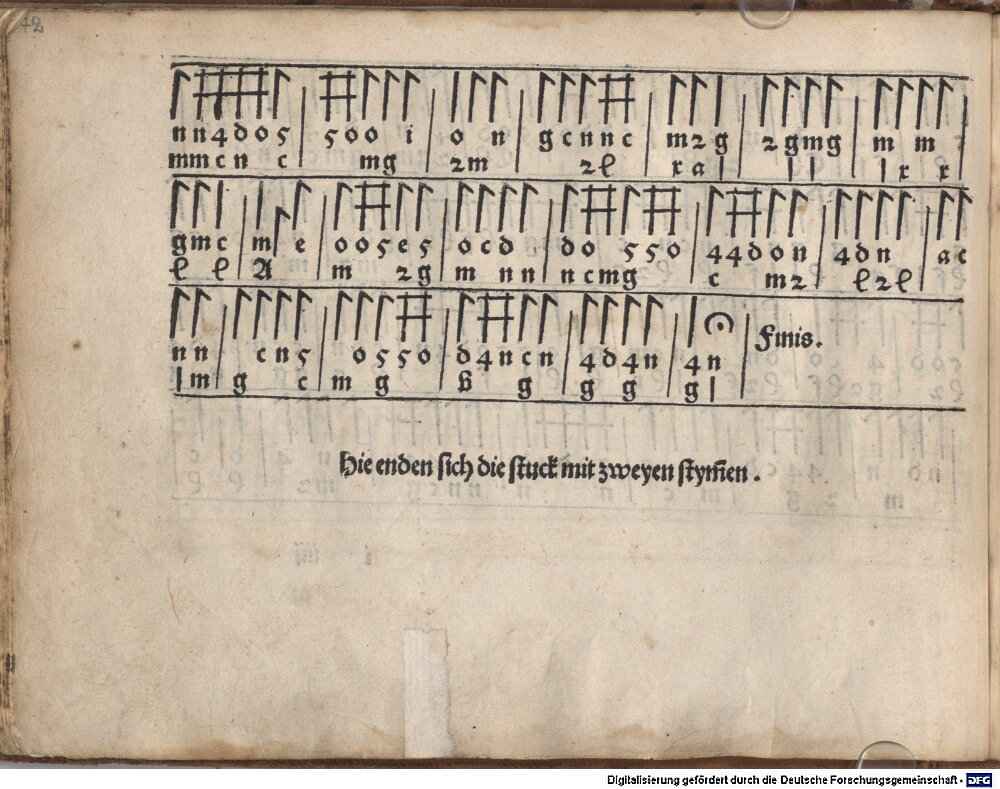 42
nn4do5 500 i o n gcnnc m2g 2gmg m m
mmcn c mg 2m 2l ra | | | | r r
gmc m e 005e5 ocd do 550 44don 4dn ac
l l A m 2g m nn ncmg c m2 l2l
nn cn5 0550 d4ncn 4d4n 4n Finis.
|m g c m g B g g g g|
Hie enden sich die stuck mit zweyen stym̄en.
Digitalisierung gefördert durch die Deutsche Forschungsgemeinschaft - DFG